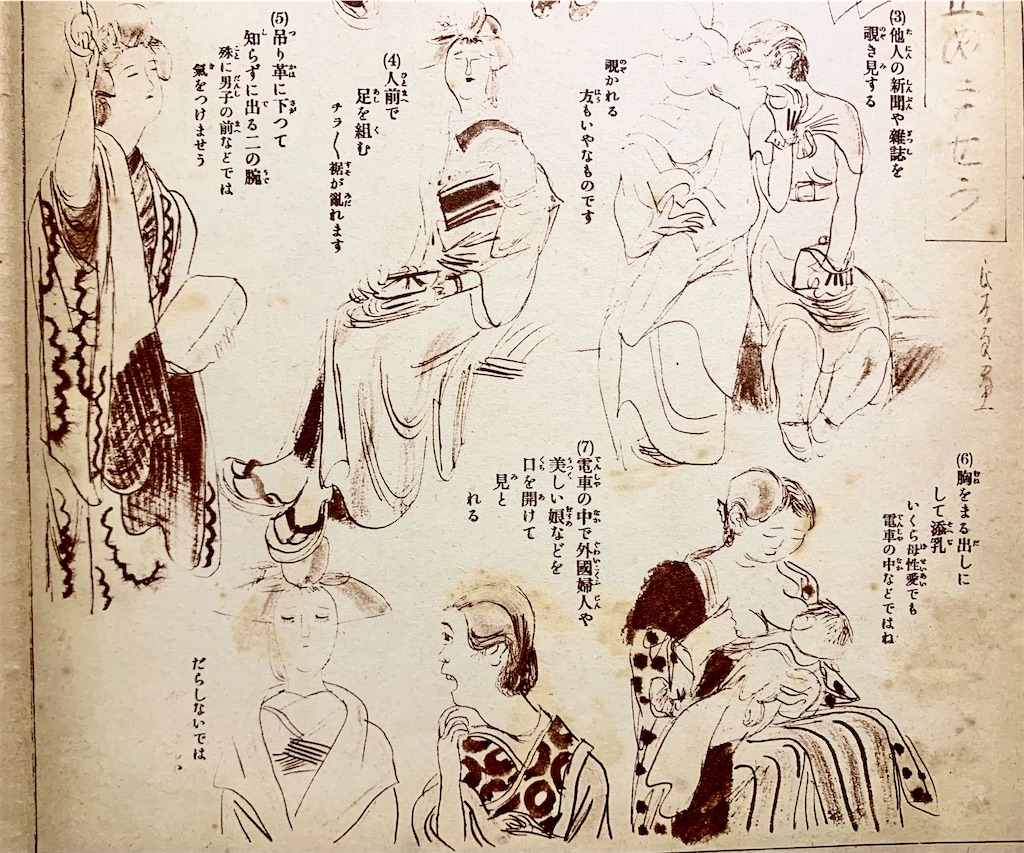 正しませう
(3)他人の新聞や雜誌を
覗き見する
覗かれる
方もいやなものです
(4)人前で
足を組む
チラ〱裾が亂れます
(5)吊り革に下つて
知らずに出る二の腕
殊に男子の前などでは
氣をつけませう
(6)胸をまる出しに
して添乳
いくら母性愛でも
電車の中などではね
(7)電車の中で外國婦人や
美しい娘などを
口を開けて
見と
れる
だらしないでは